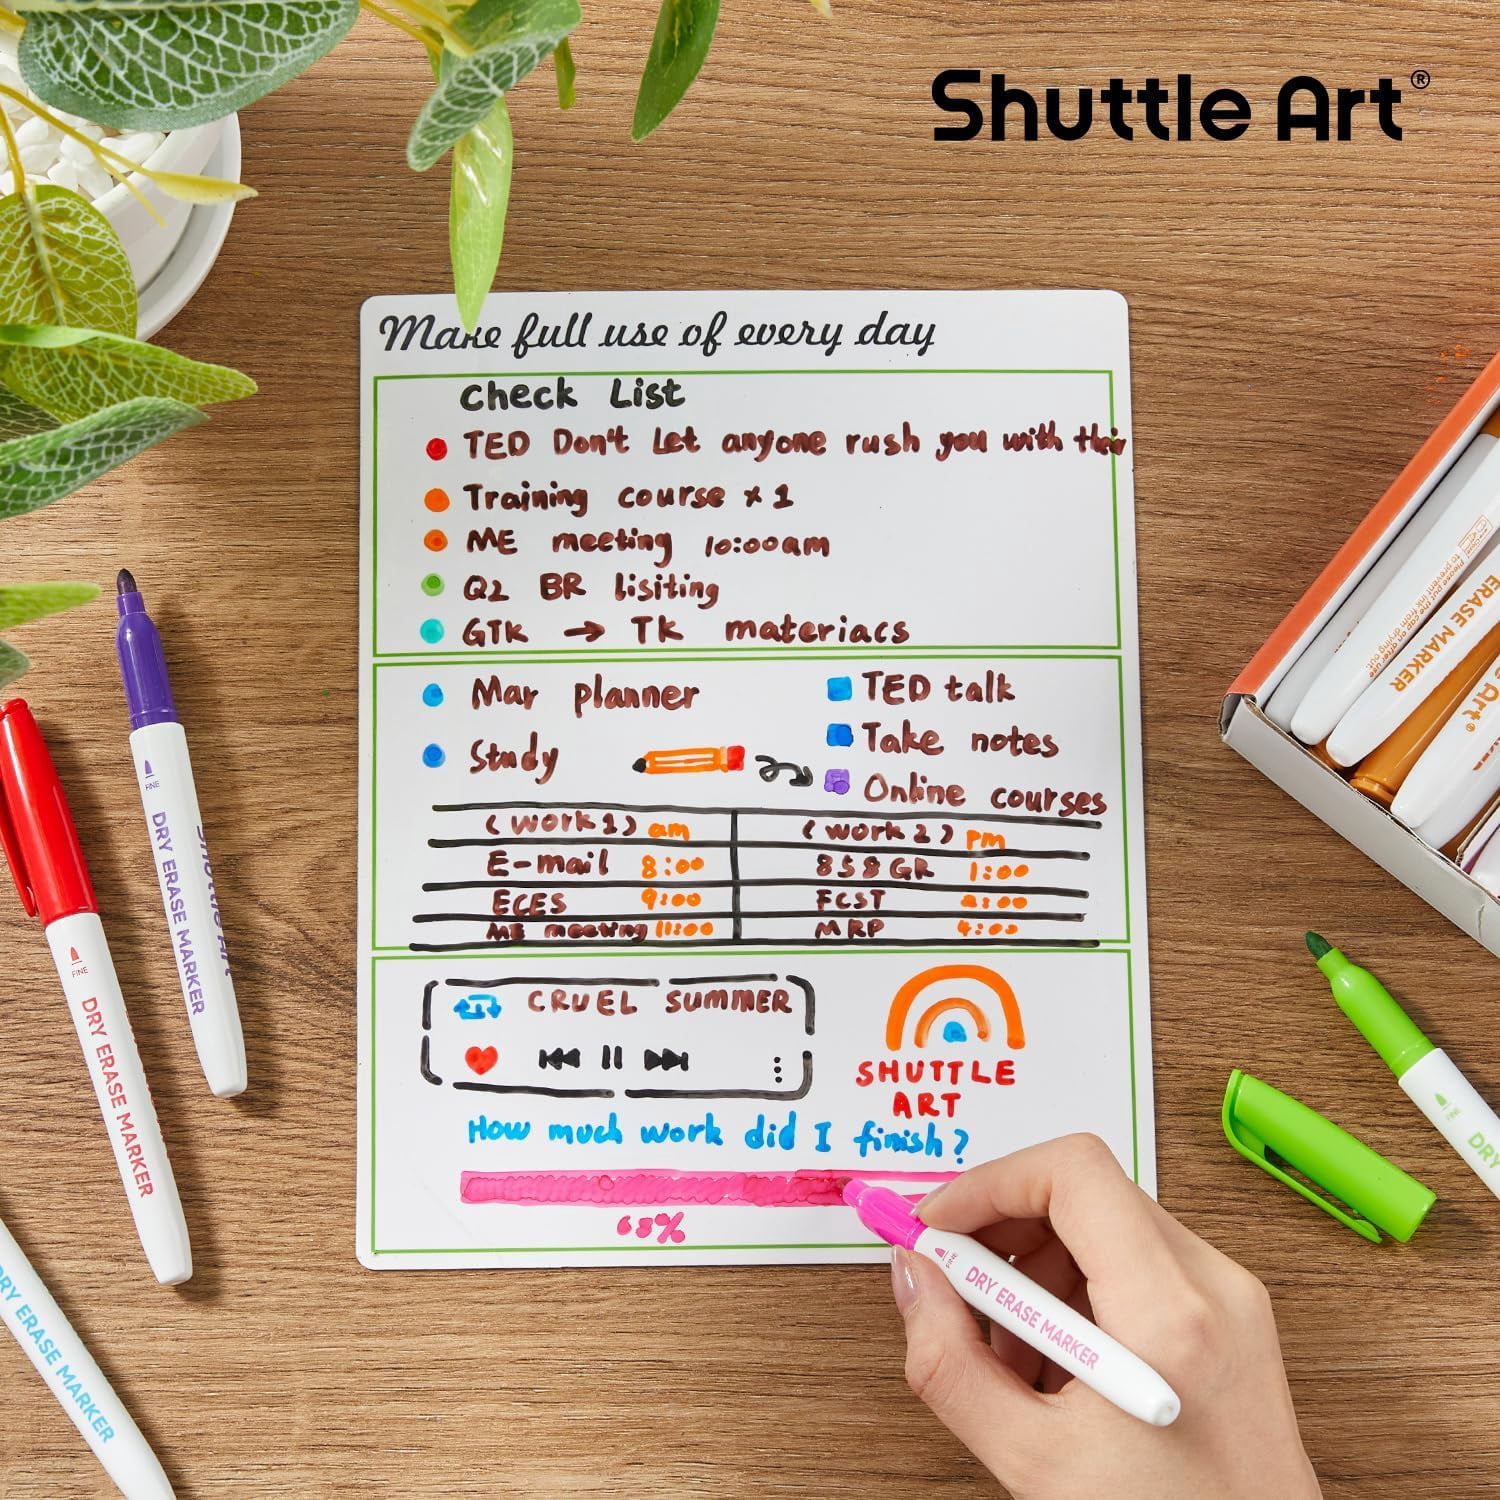 Shuttle Art®
Make full use of every day
Check List
TED Don't Let anyone rush you with their
Training course x 1
ME meeting 10:00am
Q2 BR lisiting
GTK → TK materiacs
Mar planner
Study
TED talk
Take notes
Online courses
(work1) am
(work2) pm
E-mail 8:00
858GR 1:00
ECES 9:00
FCST 2:00
ME meeting 11:00
MRP 4:00
CRUEL SUMMER
SHUTTLE
ART
How much work did I finish?
68%
FINE
DRY ERASE MARKER
Shuttle Art
FINE
DRY ERASE MARKER
DRY ERASE MARKER
FINE
DRY ERASE MARKER
FINE
DRY
ERASE MARKER
Please put the cap on after use
to prevent ink from drying out.
Art®